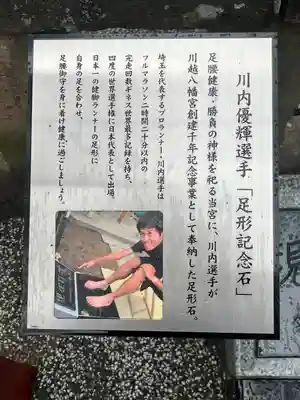 川内優輝選手「足形記念石」
足腰健康・勝負の神様を祀る当宮に、川内選手が
川越八幡宮創建千年記念事業として奉納した足形石。
埼玉を代表するプロランナー・川内選手は
フルマラソン二時間二十分以内の
完走回数ギネス世界最多記録を持ち、
四度の世界選手権に日本代表として出場。
日本一の健脚ランナーの足形に
自身の足を合わせ、
足腰御守を身に着け健康に過ごしましょう。